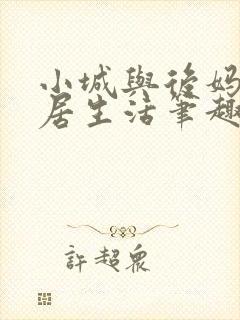 小城與後妈
居生活筆趣
許超眾